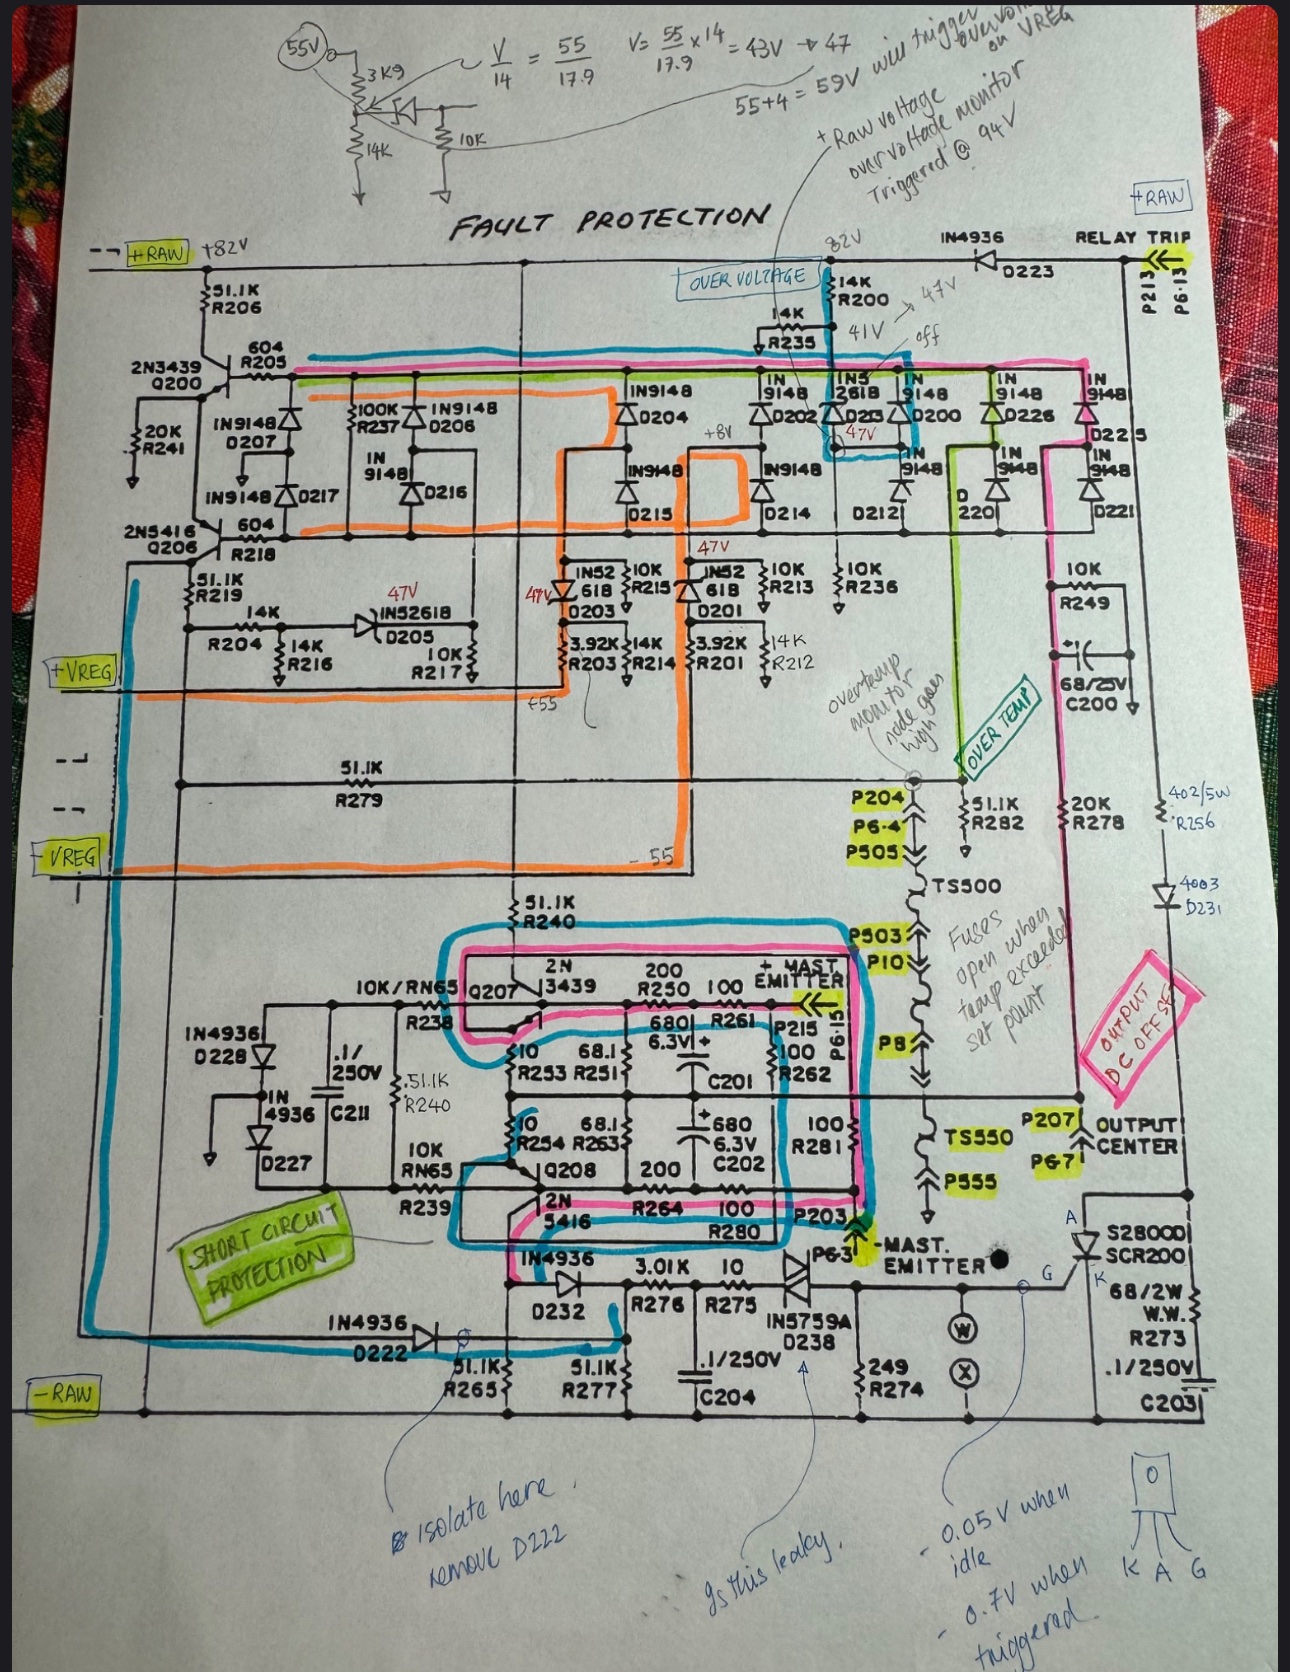 55V
3K9
14K
10K
V/14 = 55/17.9
V= 55/17.9 x14 = 43V → 47
55+4 = 59V will trigger
overvolt
on VREG
+ Raw voltage
overvoltage monitor
Triggered @ 94V
+RAW
FAULT PROTECTION
+RAW
+82V
82V
1N4936
D223
RELAY TRIP
P213
P6-13
OVER VOLTAGE
51.1K
R206
14K
R200
47V
14K
R235
41V
off
2N3439
Q200
604
R205
1N9148
D207
100K
R237
1N9148
D206
1N9148
D204
1N
9148
D202
1N5
261B
D213
1N
9148
D200
1N
9148
D226
1N
9148
D225
20K
R241
+8V
47V
1N9148
D217
1N
9148
D216
1N9148
D215
1N9148
D214
1N
9148
D212
1N
9148
D
220
1N
9148
D221
2N5416
Q206
604
R218
51.1K
R219
47V
14K
R204
14K
R216
1N5261B
D205
10K
R217
47V
1N52
61B
D203
10K
R215
47V
1N52
61B
D201
10K
R213
10K
R236
10K
R249
3.92K
R203
14K
R214
3.92K
R201
14K
R212
+
68/25V
C200
+VREG
+55
overtemp
monitor
node goes
high
OVER TEMP
51.1K
R279
P204
P6-4
P505
51.1K
R282
20K
R278
402/5W
R256
-VREG
- 55
TS500
4003
D231
51.1K
R240
P503
P10
Fuses
open when
temp exceeded
set point
10K/RN65
R238
Q207
2N
3439
200
R250
100
R261
+ MAST.
EMITTER
P215
P6-15
OUTPUT
DC OFFSET
1N4936
D228
.1/
250V
C211
51.1K
R240
10
R253
68.1
R251
680
6.3V
+
C201
100
R262
P8
1N
4936
D227
10
R254
68.1
R263
+
680
6.3V
C202
100
R281
TS550
P207
P6-7
OUTPUT
CENTER
10K
RN65
R239
Q208
2N
5416
200
R264
100
R280
P555
P203
P6-3
-MAST.
EMITTER
SHORT CIRCUIT
PROTECTION
A
G
K
S2800D
SCR200
1N4936
D232
3.01K
R276
10
R275
1N5759A
D238
68/2W
W.W.
R273
1N4936
D222
51.1K
R265
51.1K
R277
.1/250V
C204
249
R274
W
X
.1/250V
C203
-RAW
isolate here.
remove D222
Is this leaky.
- 0.05V when
idle
- 0.7V when
triggered.
K A G